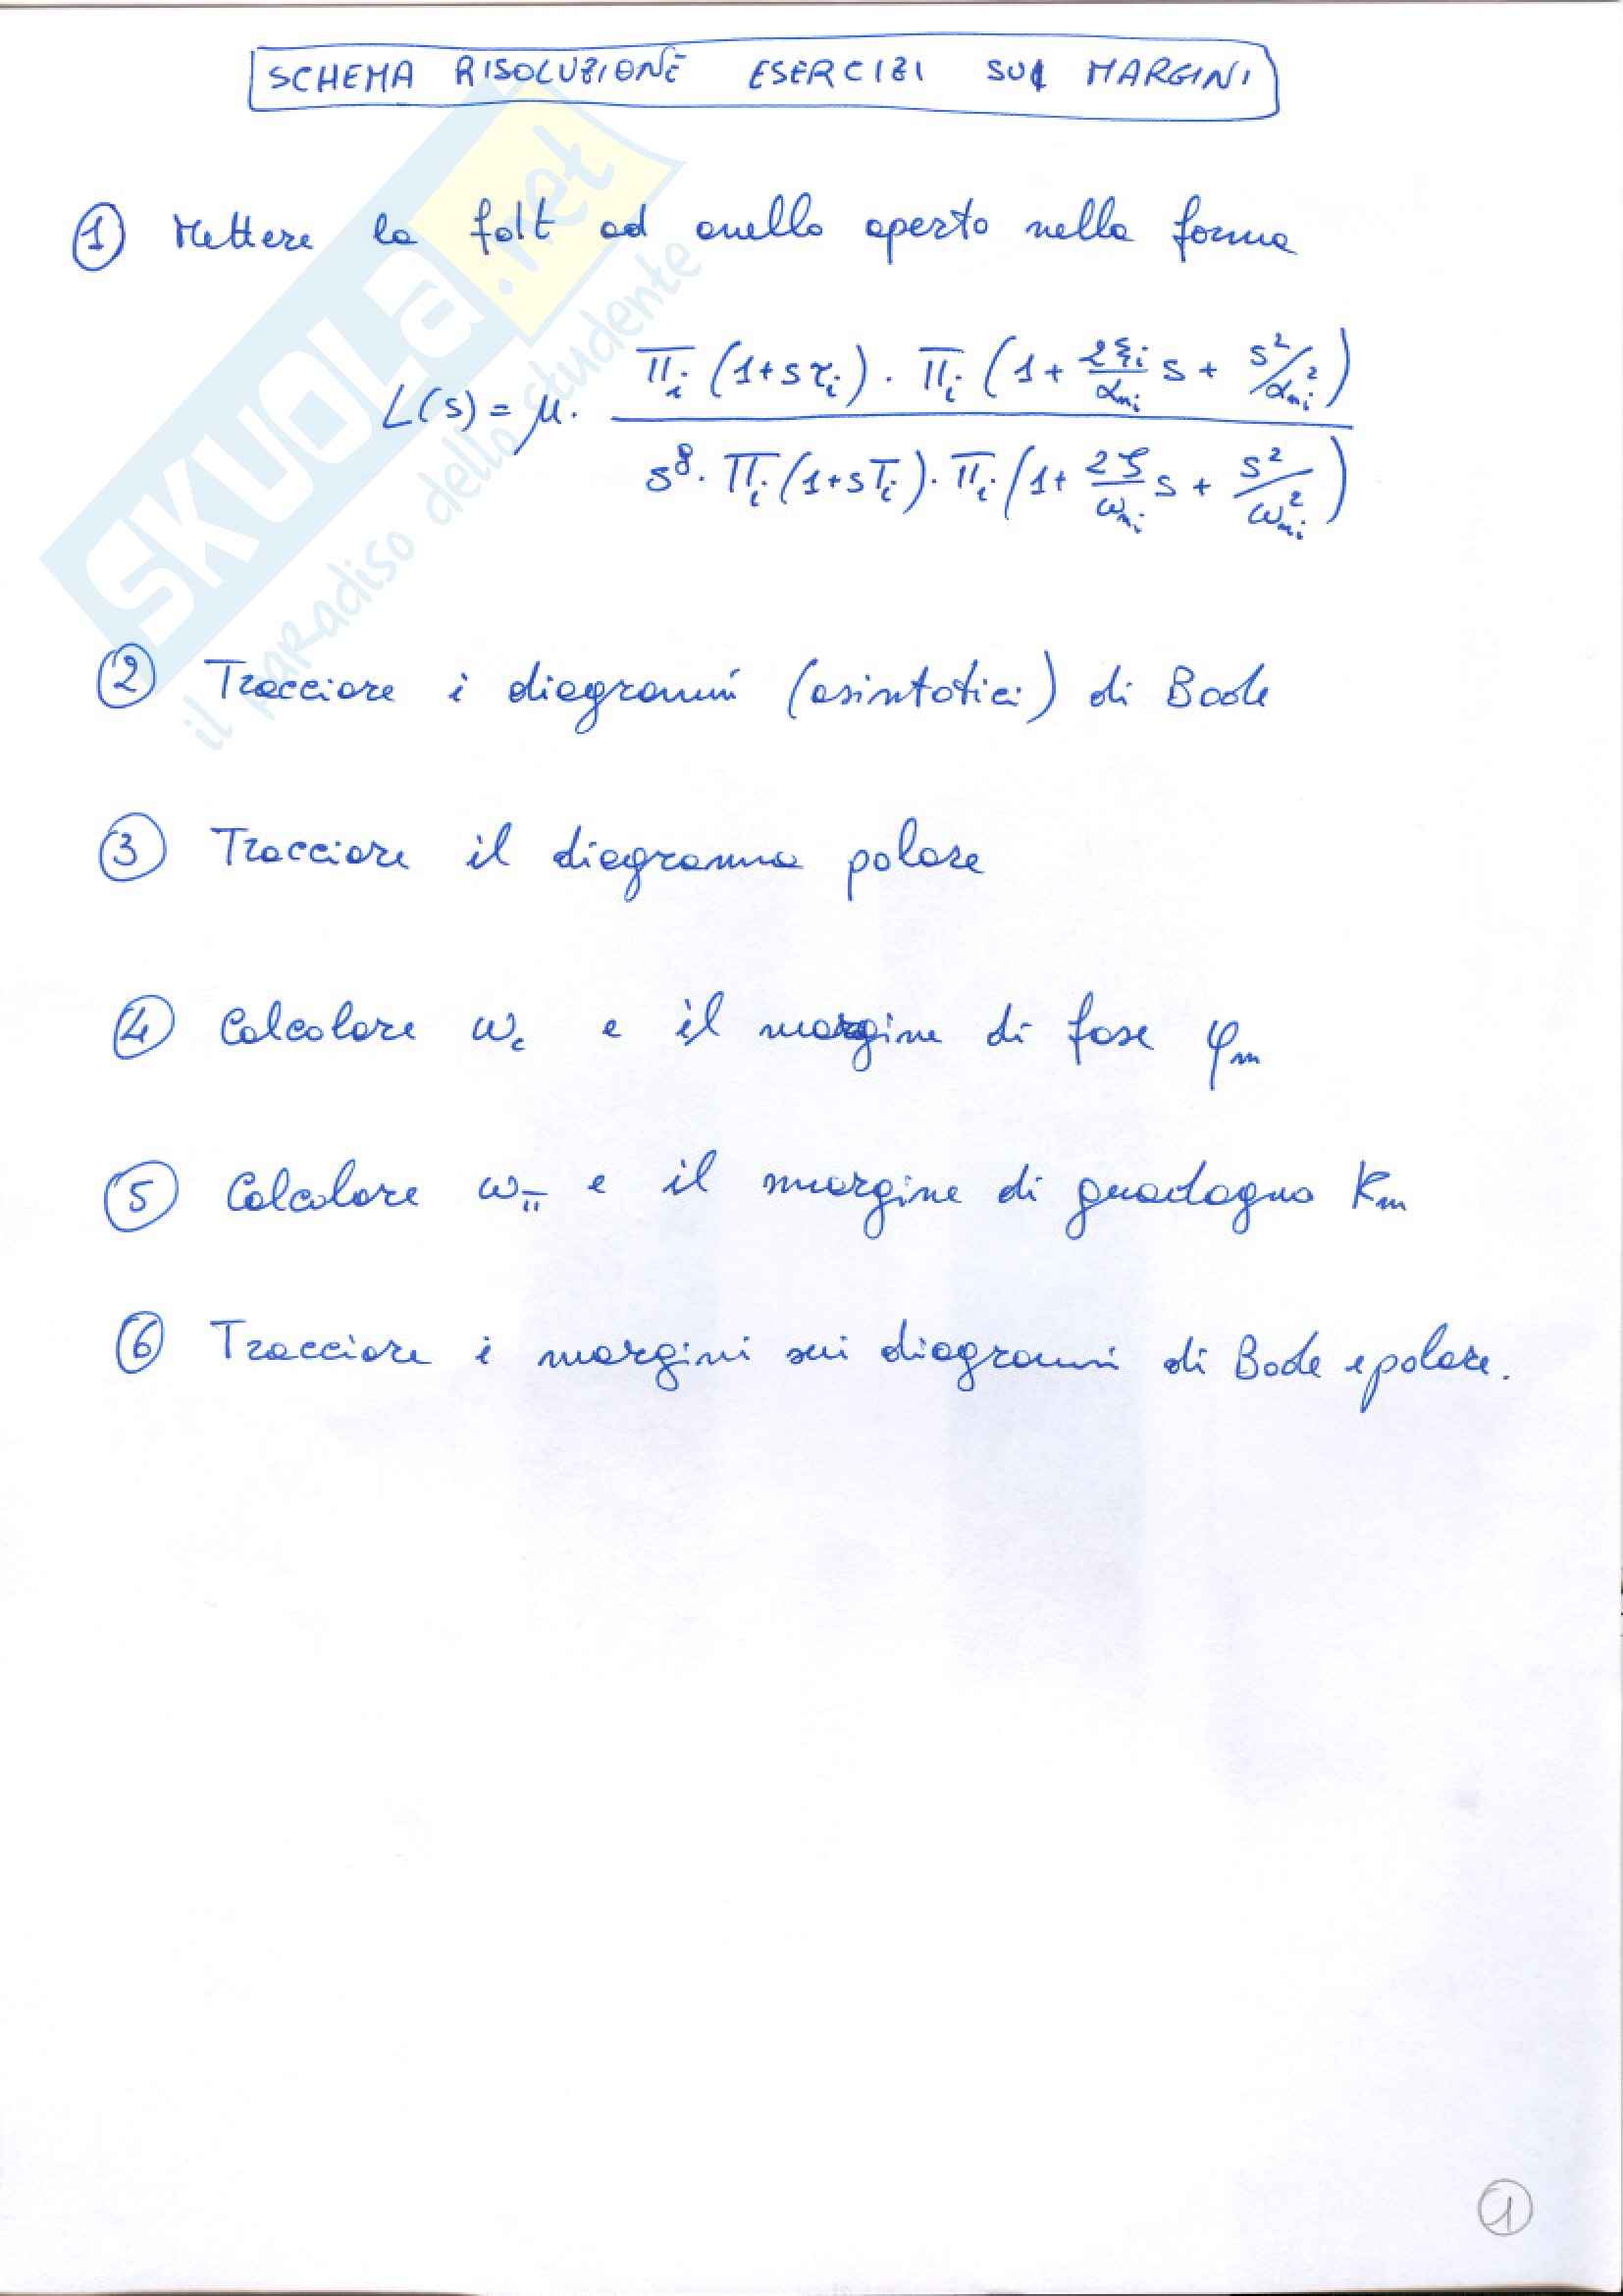 SCHEMA RISOLUZIONE ESERCIZI SUI MARGINI
① Mettere la fdt ad anello aperto nella forma
L(s) = μ · Π_i (1+sτ_i) · Π_i (1 + 2ξ_i/α_ni s + s²/α_ni²) / s^g · Π_i (1+sT_i) · Π_i (1 + 2ζ/ω_ni s + s²/ω_ni²)
② Tracciare i diagrammi (asintotici) di Bode
③ Tracciare il diagramma polare
④ Calcolare ω_c e il margine di fase φ_m
⑤ Calcolare ω_π e il margine di guadagno K_m
⑥ Tracciare i margini sui diagrammi di Bode e polare.
SKUOLA.net
il paradiso dello studente
①